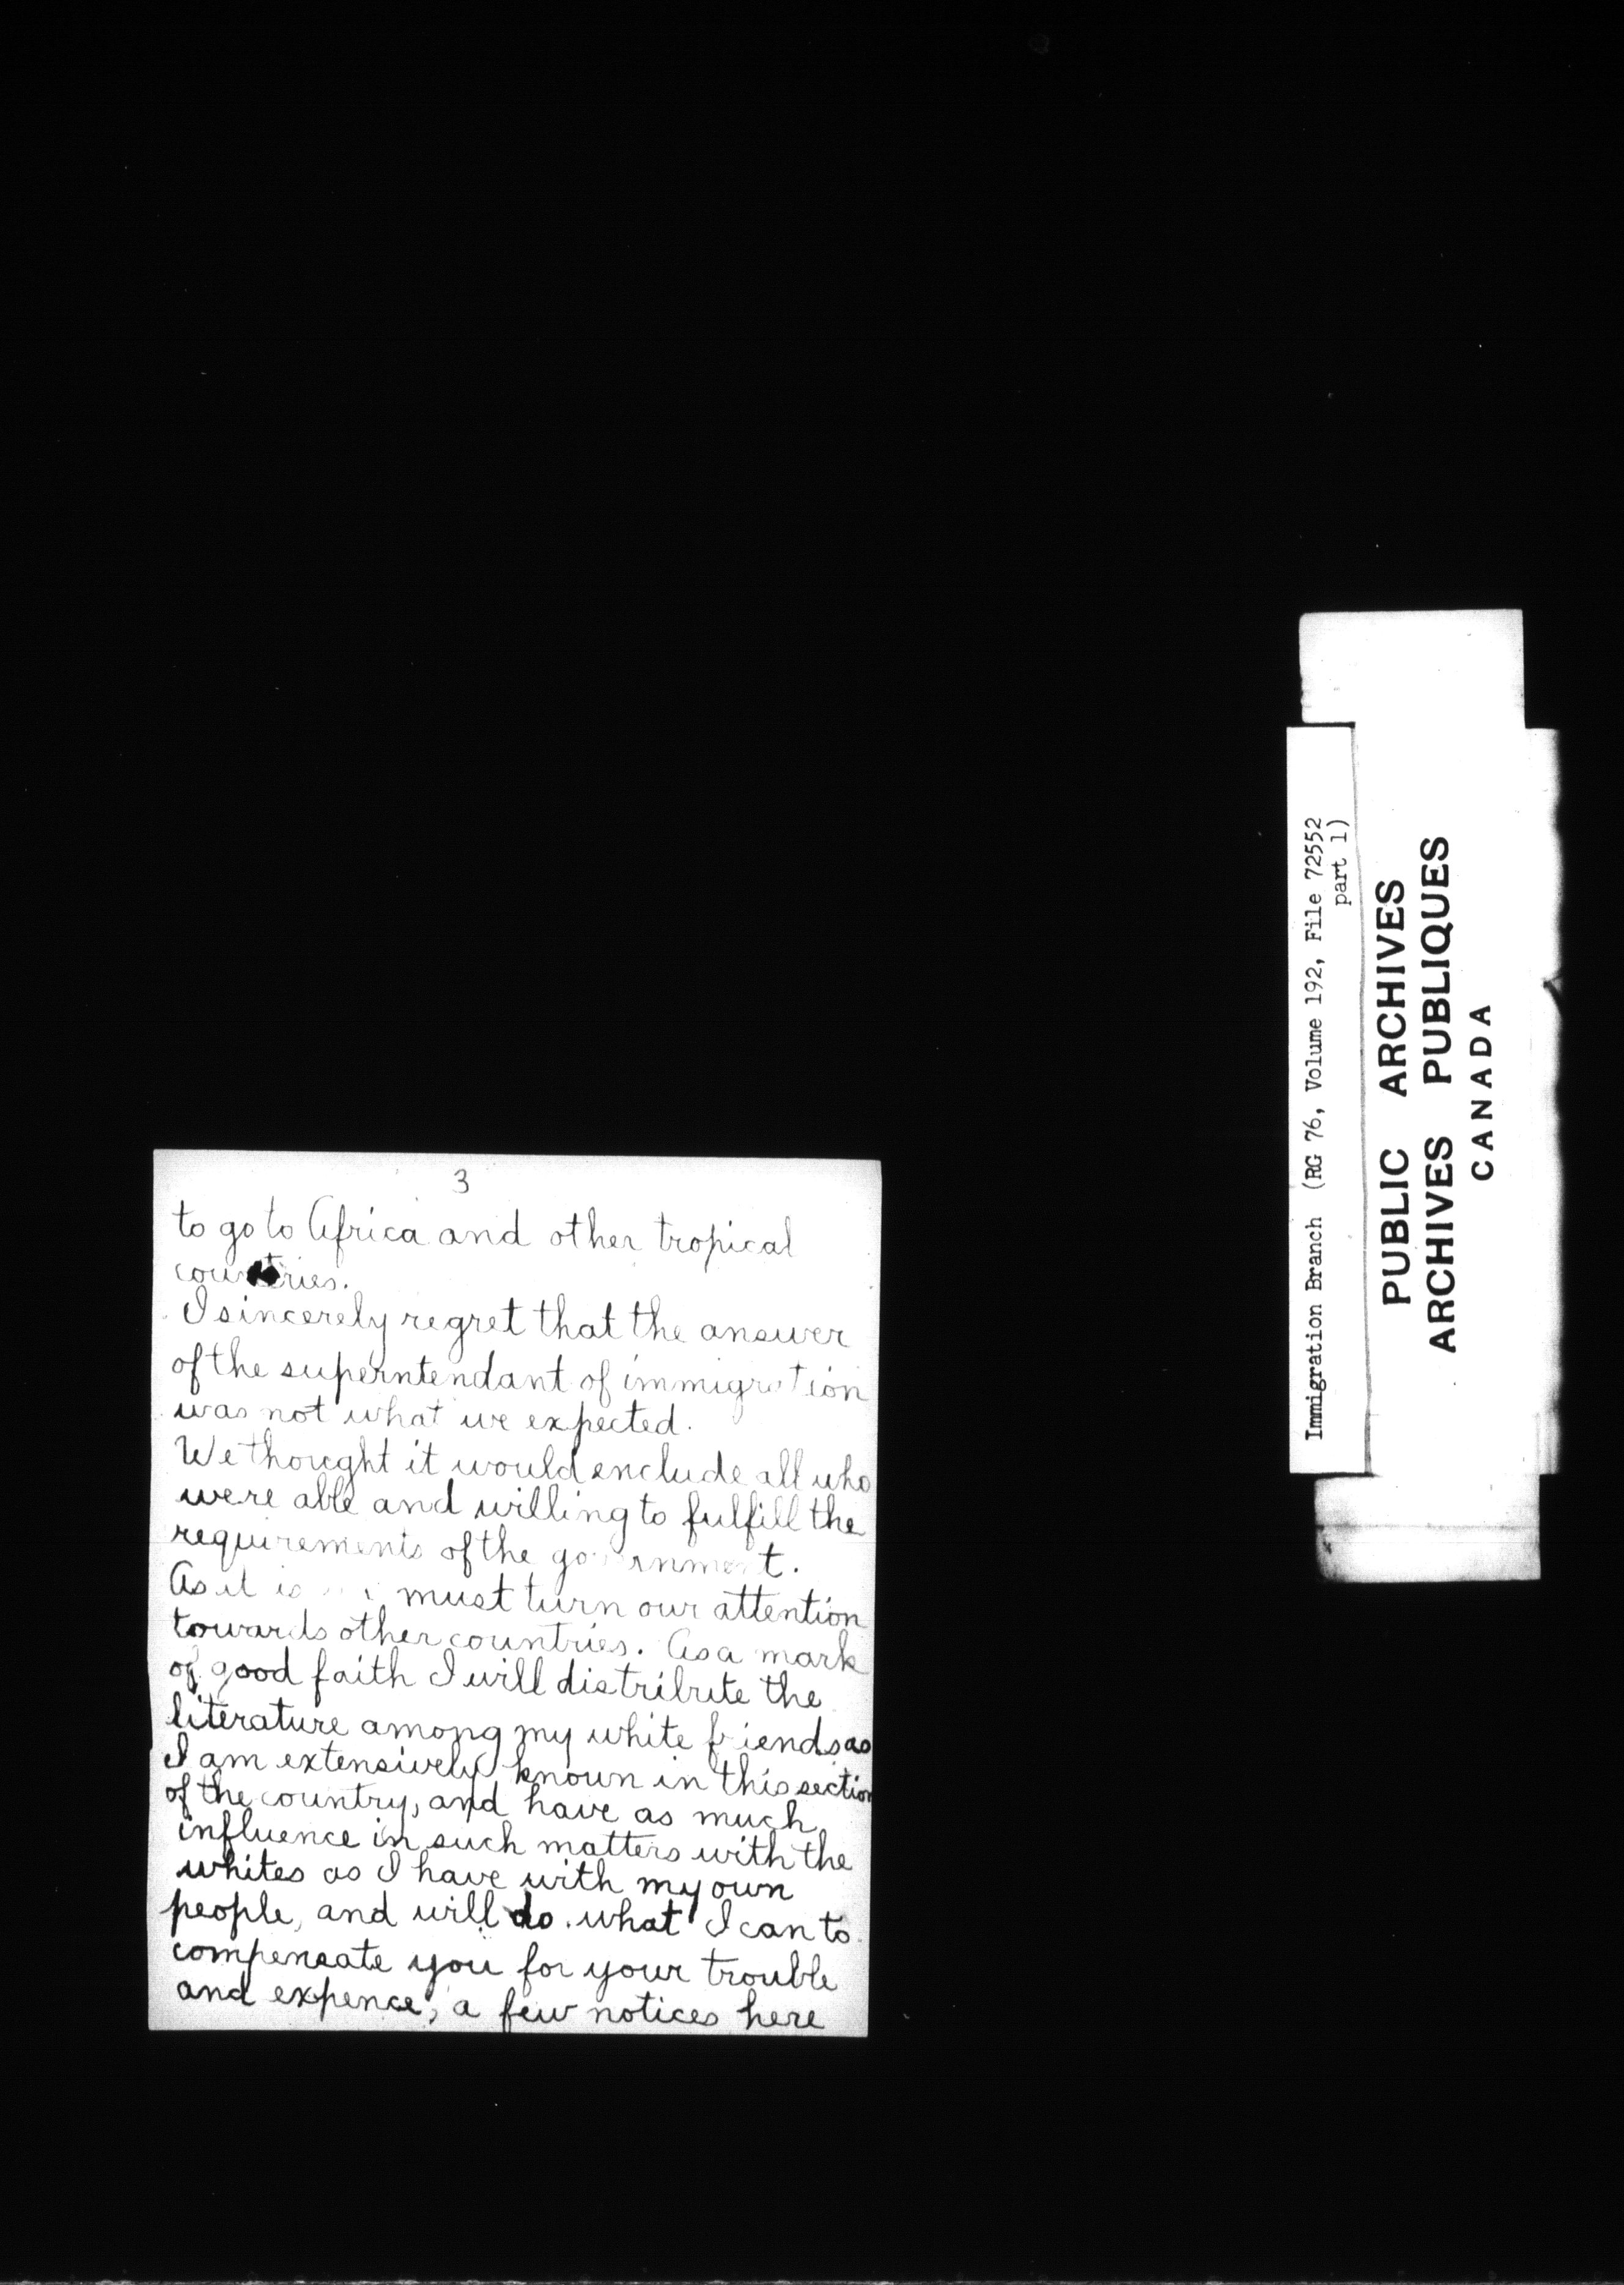 3
to go to Africa and other tropical
countries.
I sincerely regret that the answer
of the superntendant of immigration
was not what we expected.
We thought it would enclude all who
were able and willing to fulfill the
requirements of the government.
As it is must turn our attention
towards other countries. As a mark
of good faith I will distribute the
literature among my white friends as
I am extensively known in this section
of the country, and have as much
influence in such matters with the
whites as I have with my own
people, and will do what I can to
compensate you for your trouble
and expence, a few notices here
Immigration Branch (RG 76, Volume 192, File 72552
part 1)
PUBLIC ARCHIVES
ARCHIVES PUBLIQUES
CANADA